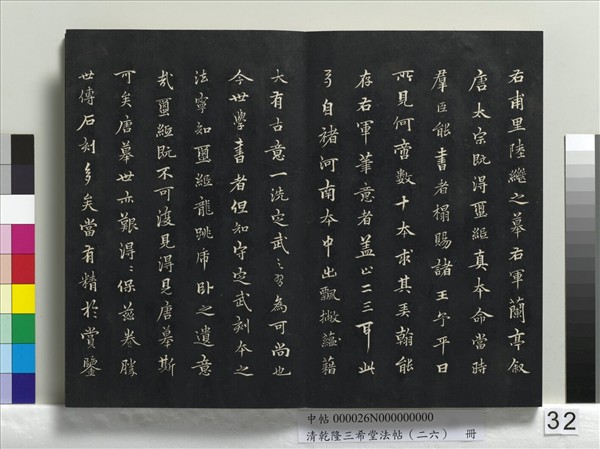 右甫里陸繼之摹右軍蘭亭叙
唐太宗既得璽紙真本命當時
羣臣能書者搨賜諸王予平日
所見何啻數十本求其弄翰能
存右軍筆意者蓋止二三耳此
乃自褚河南本中出飄撇蘊藉
大有古意一洗定武之習為可尚也
今世學書者但知守定武刻本之
法寧知璽紙龍跳虎卧之遺意
哉璽紙既不可復見得見唐摹斯
可矣唐摹世亦艱得得保茲卷勝
世傳石刻多矣當有精於賞鑒
中帖 000026N000000000
清乾隆三希堂法帖(二六) 冊
32